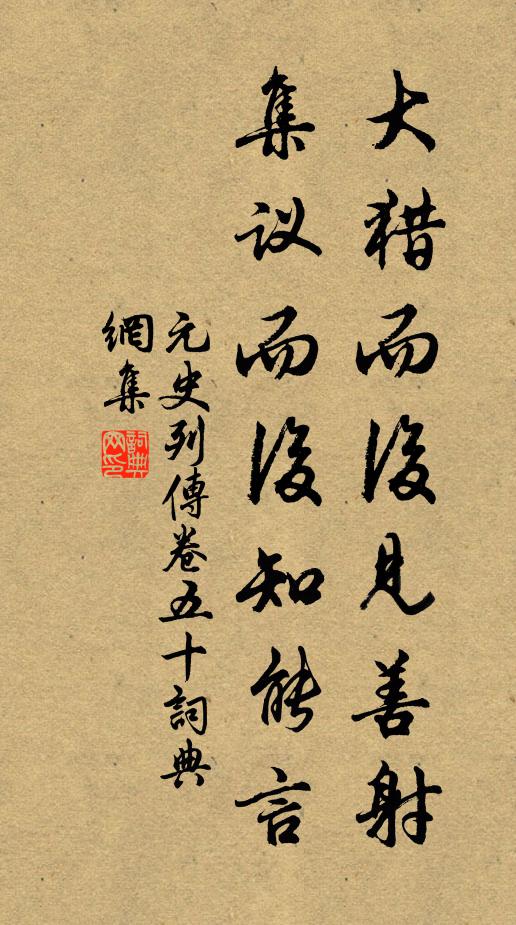 大猎而後见善射
集议而後知能言
元史列傳卷五十詞典
網集
詞典网印